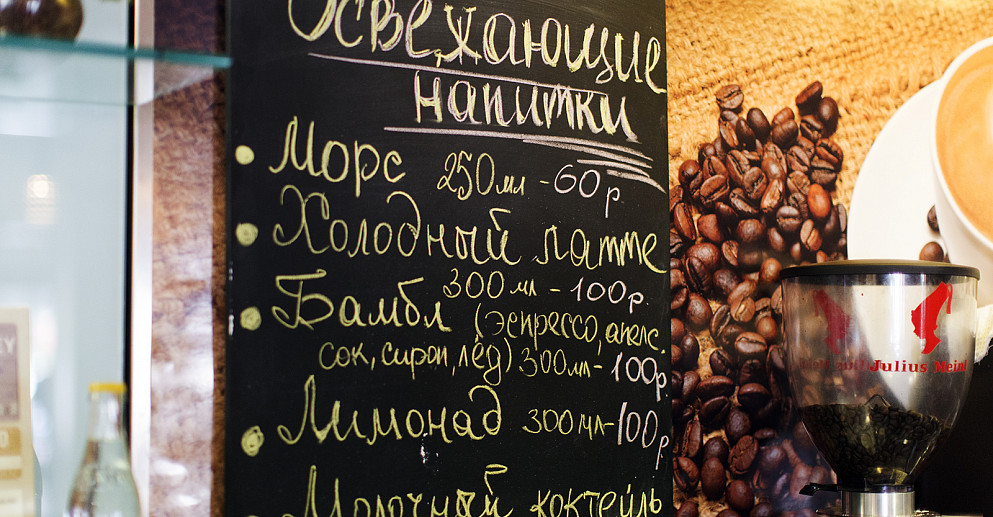 Освежающие
напитки
Морс 250мл - 60р.
Холодный латте
300мл - 100р.
Бамбл (эспрессо, апелс.
сок, сироп, лёд) 300мл - 100р
Лимонад 300мл - 100р.
Молочный коктейль
Julius Meinl